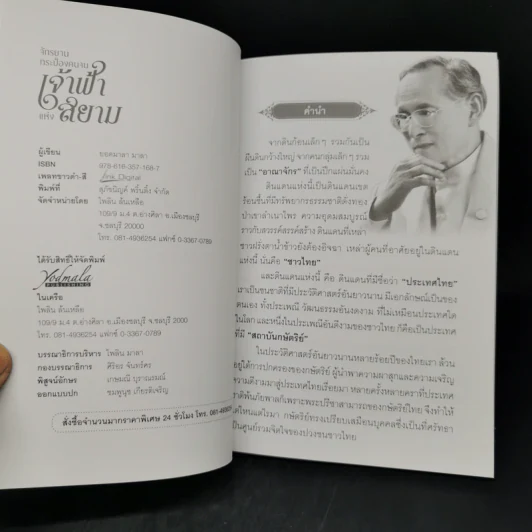 จักรยาน
กระป๋องคนจน
เจ้าฟ้า
แห่ง สยาม
ผู้เขียน ยอดมาลา มาลา
ISBN 978-616-357-168-7
เพลทขาวดำ-สี Ania_Digital
พิมพ์ที่ สุภัชนิญค์ พริ้นติ้ง จำกัด
จัดจำหน่ายโดย ไพลิน ล้นเหลือ
109/9 ม.4 ต.อ่างศิลา อ.เมืองชลบุรี
จ.ชลบุรี 20000
โทร. 081-4936254 แฟกซ์ 0-3367-0789
ได้รับสิทธิ์ให้จัดพิมพ์
Yodmala
PUBLISHING
ในเครือ
ไพลิน ล้นเหลือ
109/9 ม.4 ต.อ่างศิลา อ.เมืองชลบุรี จ.ชลบุรี 2000
โทร. 081-4936254 แฟกซ์ 0-3367-0789
บรรณาธิการบริหาร ไพลิน มาลา
กองบรรณาธิการ ศิริอร จันทร์ตร
พิสูจน์อักษร เกษมณี บุราณรมณ์
ออกแบบปก ชมพูนุช เกียรติเจริญ
สั่งซื้อจำนวนมากราคาพิเศษ 24 ชั่วโมง โทร.
คำนำ
จากดินก้อนเล็กๆ รวมกันเป็น
ผืนดินกว้างใหญ่ จากคนกลุ่มเล็กๆ รวม
เป็น "อาณาจักร" ที่เป็นปึกแผ่นมั่นคง
ดินแดนแห่งนี้เป็นดินแดนเขต
ร้อนชื้นที่มีทรัพยากรธรรมชาติดังทอง
ป่าเขาลำเนาไพร ความอุดมสมบูรณ์
ราวกับสวรรค์สรรค์สร้าง ดินแดนที่เหล่า
ชาวฝรั่งตาน้ำข้าวยังต้องอิจฉา เหล่าผู้คนที่อาศัยอยู่ในดินแดน
แห่งนี้ นั่นคือ "ชาวไทย"
และดินแดนแห่งนี้ คือ ดินแดนที่มีชื่อว่า "ประเทศไทย"
เราเป็นชนชาติที่มีประวัติศาสตร์อันยาวนาน มีเอกลักษณ์เป็นของ
ตนเอง ทั้งประเพณี วัฒนธรรมอันงดงาม ที่ไม่เหมือนประเทศใด
ในโลก และหนึ่งในประเพณีอันดีงามของชาวไทย ก็คือเป็นประเทศ
ที่มี "สถาบันกษัตริย์"
ในประวัติศาสตร์อันยาวนานหลายร้อยปีของไทยเรา ล้วน
อยู่ใต้การปกครองของกษัตริย์ ผู้นำพาความผาสุกและความเจริญ
ความดีงามมาสู่ประเทศไทยเรื่อยมา หลายครั้งหลายคราที่ประเทศ
ชาติพ้นภัยพาลก็เพราะพระปรีชาสามารถของกษัตริย์ไทย จึงทำให้
ไม่ว่ายุคใดหนใดไรมา กษัตริย์ทรงเปรียบเสมือนบุคคลซึ่งเป็นที่ศรัทธา
เป็นศูนย์รวมจิตใจของปวงชนชาวไทย